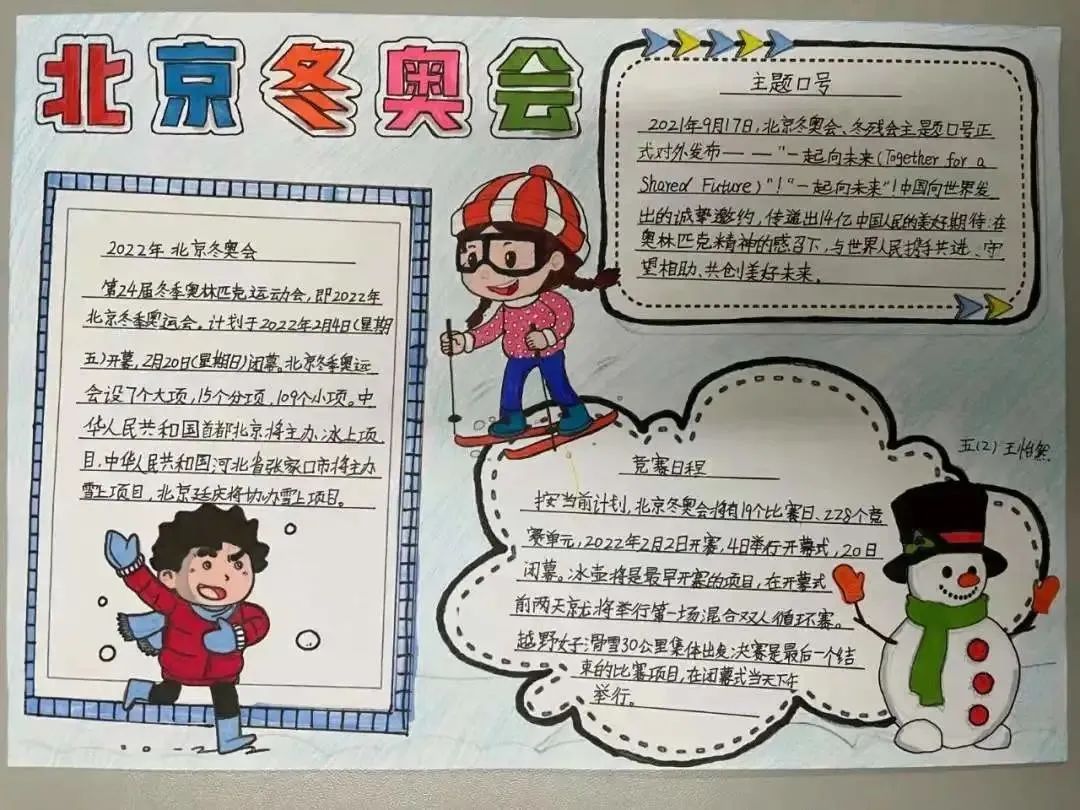 北京冬奥会
2022年北京冬奥会
第24届冬季奥林匹克运动会,即2022年
北京冬季奥运会。计划于2022年2月4日(星期
五)开幕,2月20日(星期日)闭幕。北京冬季奥运
会设7个大项,15个分项,109个小项。中
华人民共和国首都北京将主办冰上项
目,中华人民共和国河北省张家口市将主办
雪上项目,北京延庆将协办雪上项目。
主题口号
2021年9月17日,北京冬奥会、冬残会主题口号正
式对外发布——"一起向未来(Together for a
Shared Future)"!"一起向未来"!中国向世界发
出的诚挚邀约,传递出14亿中国人民的美好期待:在
奥林匹克精神的感召下,与世界人民携手共进、守
望相助、共创美好未来。
五(2) 王怡然
竞赛日程
按当前计划,北京冬奥会将有19个比赛日、228个竞
赛单元,2022年2月2日开赛,4日举行开幕式,20日
闭幕。冰壶将是最早开赛的项目,在开幕式
前两天就将举行第一场混合双人循环赛。
越野女子滑雪30公里集体出发决赛是最后一个结
束的比赛项目,在闭幕式当天下午
举行。